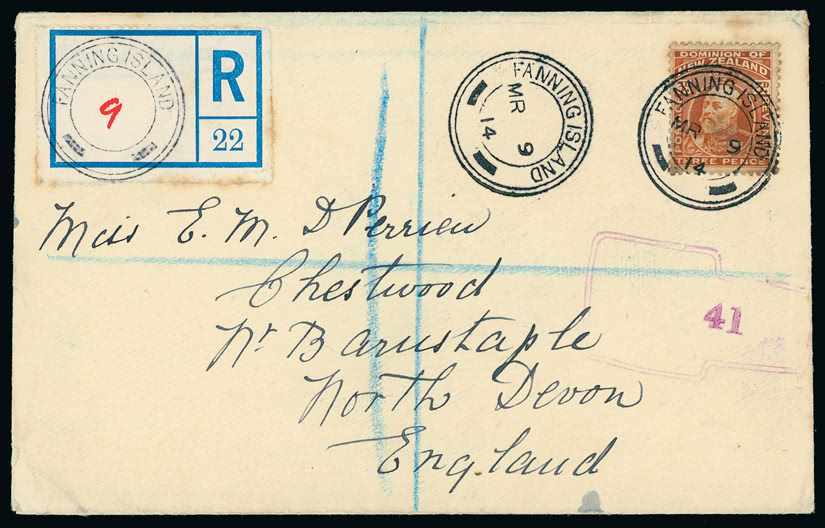 FANNING ISLAND
9
R
22
FANNING ISLAND
MR 9
14
DOMINION OF
NEW ZEALAND
THREE PENCE
FANNING ISLAND
MR 9
14
Miss E. M. D Perrien
Chestwood
41
Nr Barnstaple
North Devon
England